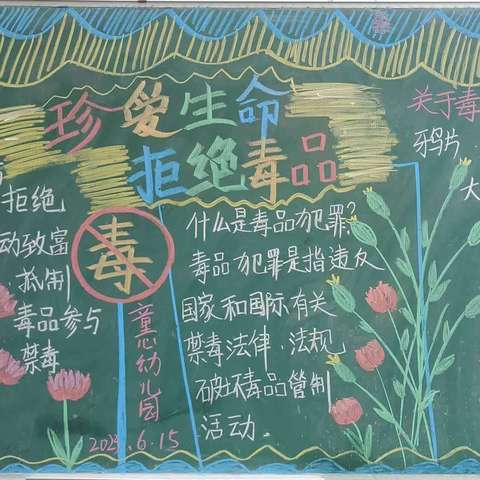 珍爱生命
拒绝毒品
拒绝
动致富
抵制
毒品参与
禁毒
毒
童心幼儿园
6.15
什么是毒品犯罪?
毒品犯罪是指违反
国家和国际有关
禁毒法律、法规
破坏毒品管制
活动.
关于毒
鸦片
大